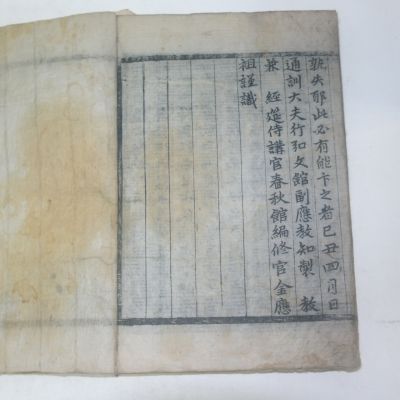 孰失耶此必有能卞之者己丑四月日
通訓大夫行弘文館副應敎知製 敎
兼 經筵侍講官春秋館編修官金應
祖謹識